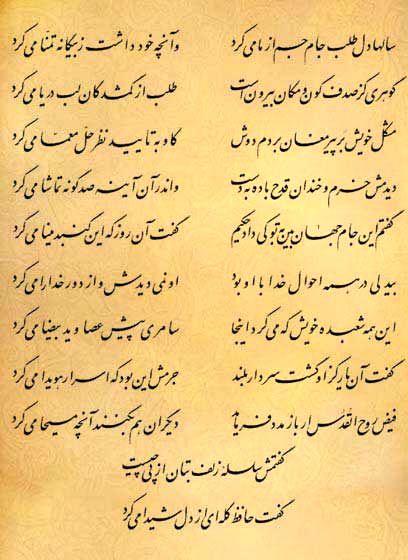 سالها دل طلب جام جم از ما می‌کرد وآنچه خود داشت ز بیگانه تمنّا می‌کرد
گوهری کز صدف کون و مکان بیرون است طلب از گمشدگان لب دریا می‌کرد
مشکل خویش بر پیر مغان بردم دوش کاو به تایید نظر حلّ معمّا می‌کرد
دیدمش خرم و خندان قدح باده به دست واندر آن آینه صد گونه تماشا می‌کرد
گفتم این جام جهان بین به تو کی داد حکیم گفت آن روز که این گنبد مینا می‌کرد
بیدلی در همه احوال خدا با او بود او نمی دیدش و از دور خدا را می‌کرد
این همه شعبده خویش که می‌کرد اینجا سامری پیش عصا و ید بیضا می‌کرد
گفت آن یار کز او گشت سر دار بلند جرمش این بود که اسرار هویدا می‌کرد
فیض روح القدس ار باز مدد فرماید دیگران هم بکنند آنچه مسیحا می‌کرد
گفتمش سلسلهٔ زلف بتان از پی چیست
گفت حافظ گله ای از دل شیدا می‌کرد